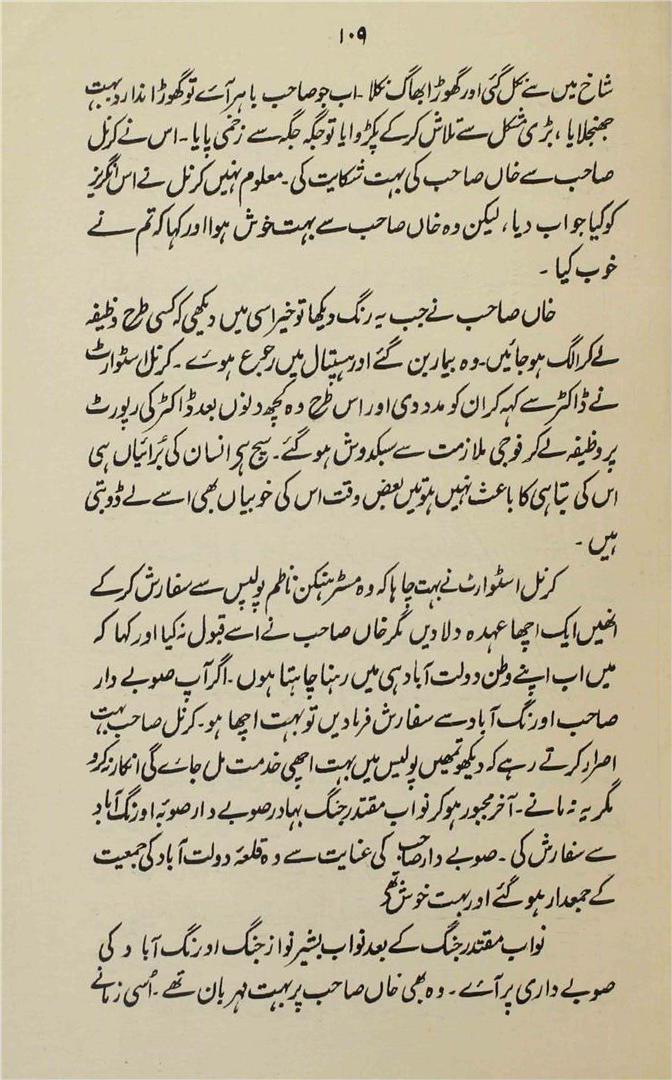 ۱۰۹
شاخ میں سے نکل گئی اور گھوڑا بھاگ نکلا ۔ اب جو صاحب باہر آے تو گھوڑا ندارد بہت
جھنجلایا ، بڑی مشکل سے تلاش کرکے پکڑوایا تو جگہ جگہ سے زخمی پایا ۔ اس نے کرنل
صاحب سے خاں صاحب کی بہت شکایت کی ۔ معلوم نہیں کرنل نے اس انگریز
کو کیا جواب دیا ، لیکن وہ خاں صاحب سے بہت خوش ہوا اور کہا کہ تم نے
خوب کیا ۔
خاں صاحب نے جب یہ رنگ دیکھا تو خیر اسی میں دیکھی کہ کسی طرح وظیفہ
لے کر الگ ہو جائیں ۔ وہ بیمار بن گئے اور ہسپتال میں رجوع ہوے ۔ کرنل اسٹوارٹ
نے ڈاکٹر سے کہہ کر ان کو مدد دی اور اس طرح وہ کچھ دنوں بعد ڈاکٹر کی رپورٹ
پر وظیفہ لے کر فوجی ملازمت سے سبکدوش ہو گئے ۔ سچ ہے انسان کی برائیاں ہی
اس کی تباہی کا باعث نہیں ہوتیں بعض وقت اس کی خوبیاں بھی اسے لے ڈوبتی
ہیں ۔
کرنل اسٹوارٹ نے بہت چاہا کہ وہ مسٹر ہنکن ناظم پولیس سے سفارش کرکے
انھیں ایک اچھا عہدہ دلا دیں مگر خاں صاحب نے اسے قبول نہ کیا اور کہا کہ
میں اب اپنے وطن دولت آباد ہی میں رہنا چاہتا ہوں ۔ اگر آپ صوبے دار
صاحب اورنگ آباد سے سفارش فرما دیں تو بہت اچھا ہو ۔ کرنل صاحب بہت
اصرار کرتے رہے کہ دیکھو تمھیں پولیس میں بہت اچھی خدمت مل جاے گی انکار نہ کرو
مگر یہ نہ مانے ۔ آخر مجبور ہو کر نواب مقتدر جنگ بہادر صوبے دار صوبۂ اورنگ آباد
سے سفارش کی ۔ صوبے دار صاحب کی عنایت سے وہ قلعۂ دولت آباد کی جمعیت
کے جمعدار ہو گئے اور بہت خوش تھے
نواب مقتدر جنگ کے بعد نواب بشیر نواز جنگ اورنگ آباد کی
صوبے داری پر آے ۔ وہ بھی خاں صاحب پر بہت مہربان تھے ۔ اُسی زمانے